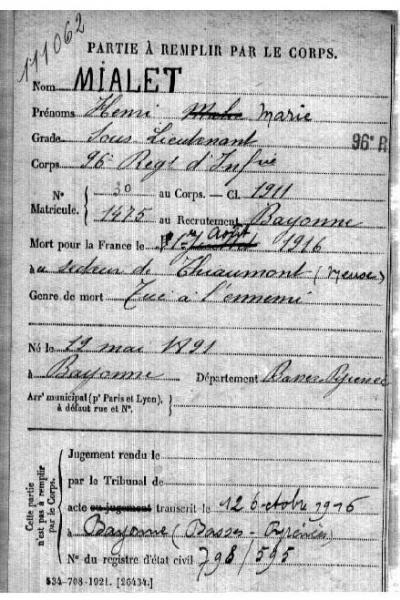 111062
PARTIE À REMPLIR PAR LE CORPS.
Nom MIALET
Prénoms Henri Marie
Grade Sous Lieutenant
96e R
Corps 96e Regt d'Infie
N° 30 au Corps. — Cl. 1911
Matricule. 1475 au Recrutement Bayonne
Mort pour la France le 1er Août 1916
à au secteur de Thiaumont (Meuse)
Genre de mort Tué à l'ennemi
Né le 19 mai 1891
à Bayonne Département Basses Pyrénées
Arrt municipal (pr Paris et Lyon), à défaut rue et N°.
Cette partie n'est pas à remplir par le Corps.
Jugement rendu le
par le Tribunal de
acte ou jugement transcrit le 12 Octobre 1916
à Bayonne (Basses-Pyrénées)
N° du registre d'état civil 798/595
534-708-1921. [26434.]